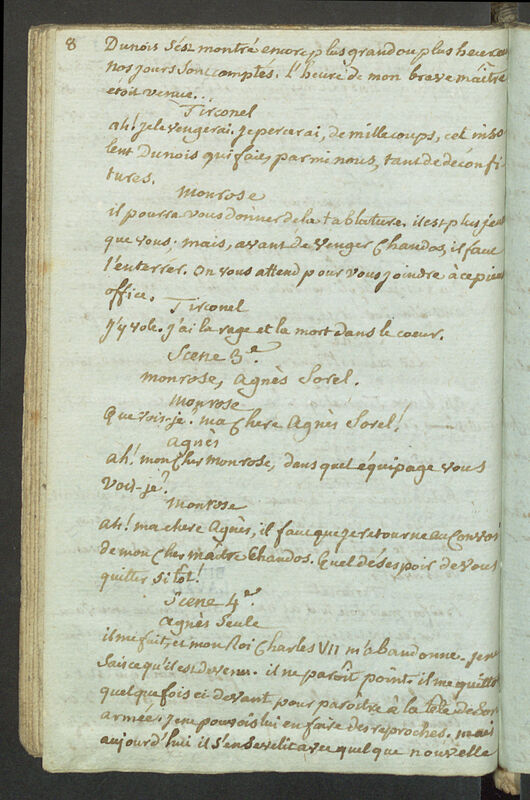 8 Dunois s'ést montré encore plus grand ou plus heureux
nos jours sont comptés. L'heure de mon brave maître
étoit venue...
Tirconel
ah! je le vengerai. je percerai, de mille coups, cet inso
lent Dunois qui fais parmi nous, tant de déconfi
tures.
Monrose
il pourra vous donner de la tablature. il est plus jeune
que vous; mais, avant de venger Chandos, il faut
l'enterrer. On vous attend pour vous joindre à ce pieux
office.
Tirconel
j'y vole. j'ai la rage et la mort dans le coeur.
Scene 3.e
monrose, agnès Sorel.
monrose
que vois-je! ma chere Agnès Sorel!
agnès
ah! mon cher monrose, dans quel équipage vous
vois-je?
monrose
ah! ma chere Agnès, il faut que je retourne au Convoi
de mon cher maître Chandos. Quel désespoir de vous
quitter si tôt!
Scene 4.e
agnès Seule
il me fuit, et mon Roi Charles VII m'abandonne. je ne
sais ce qu'il est devenu. il ne paroît point. il me quitta
quelquefois ci devant, pour paroître à la tête de son
armée. je ne pouvois lui en faire des reproches. mais
aujourd'hui il s'ensevelit avec quelque nouvelle